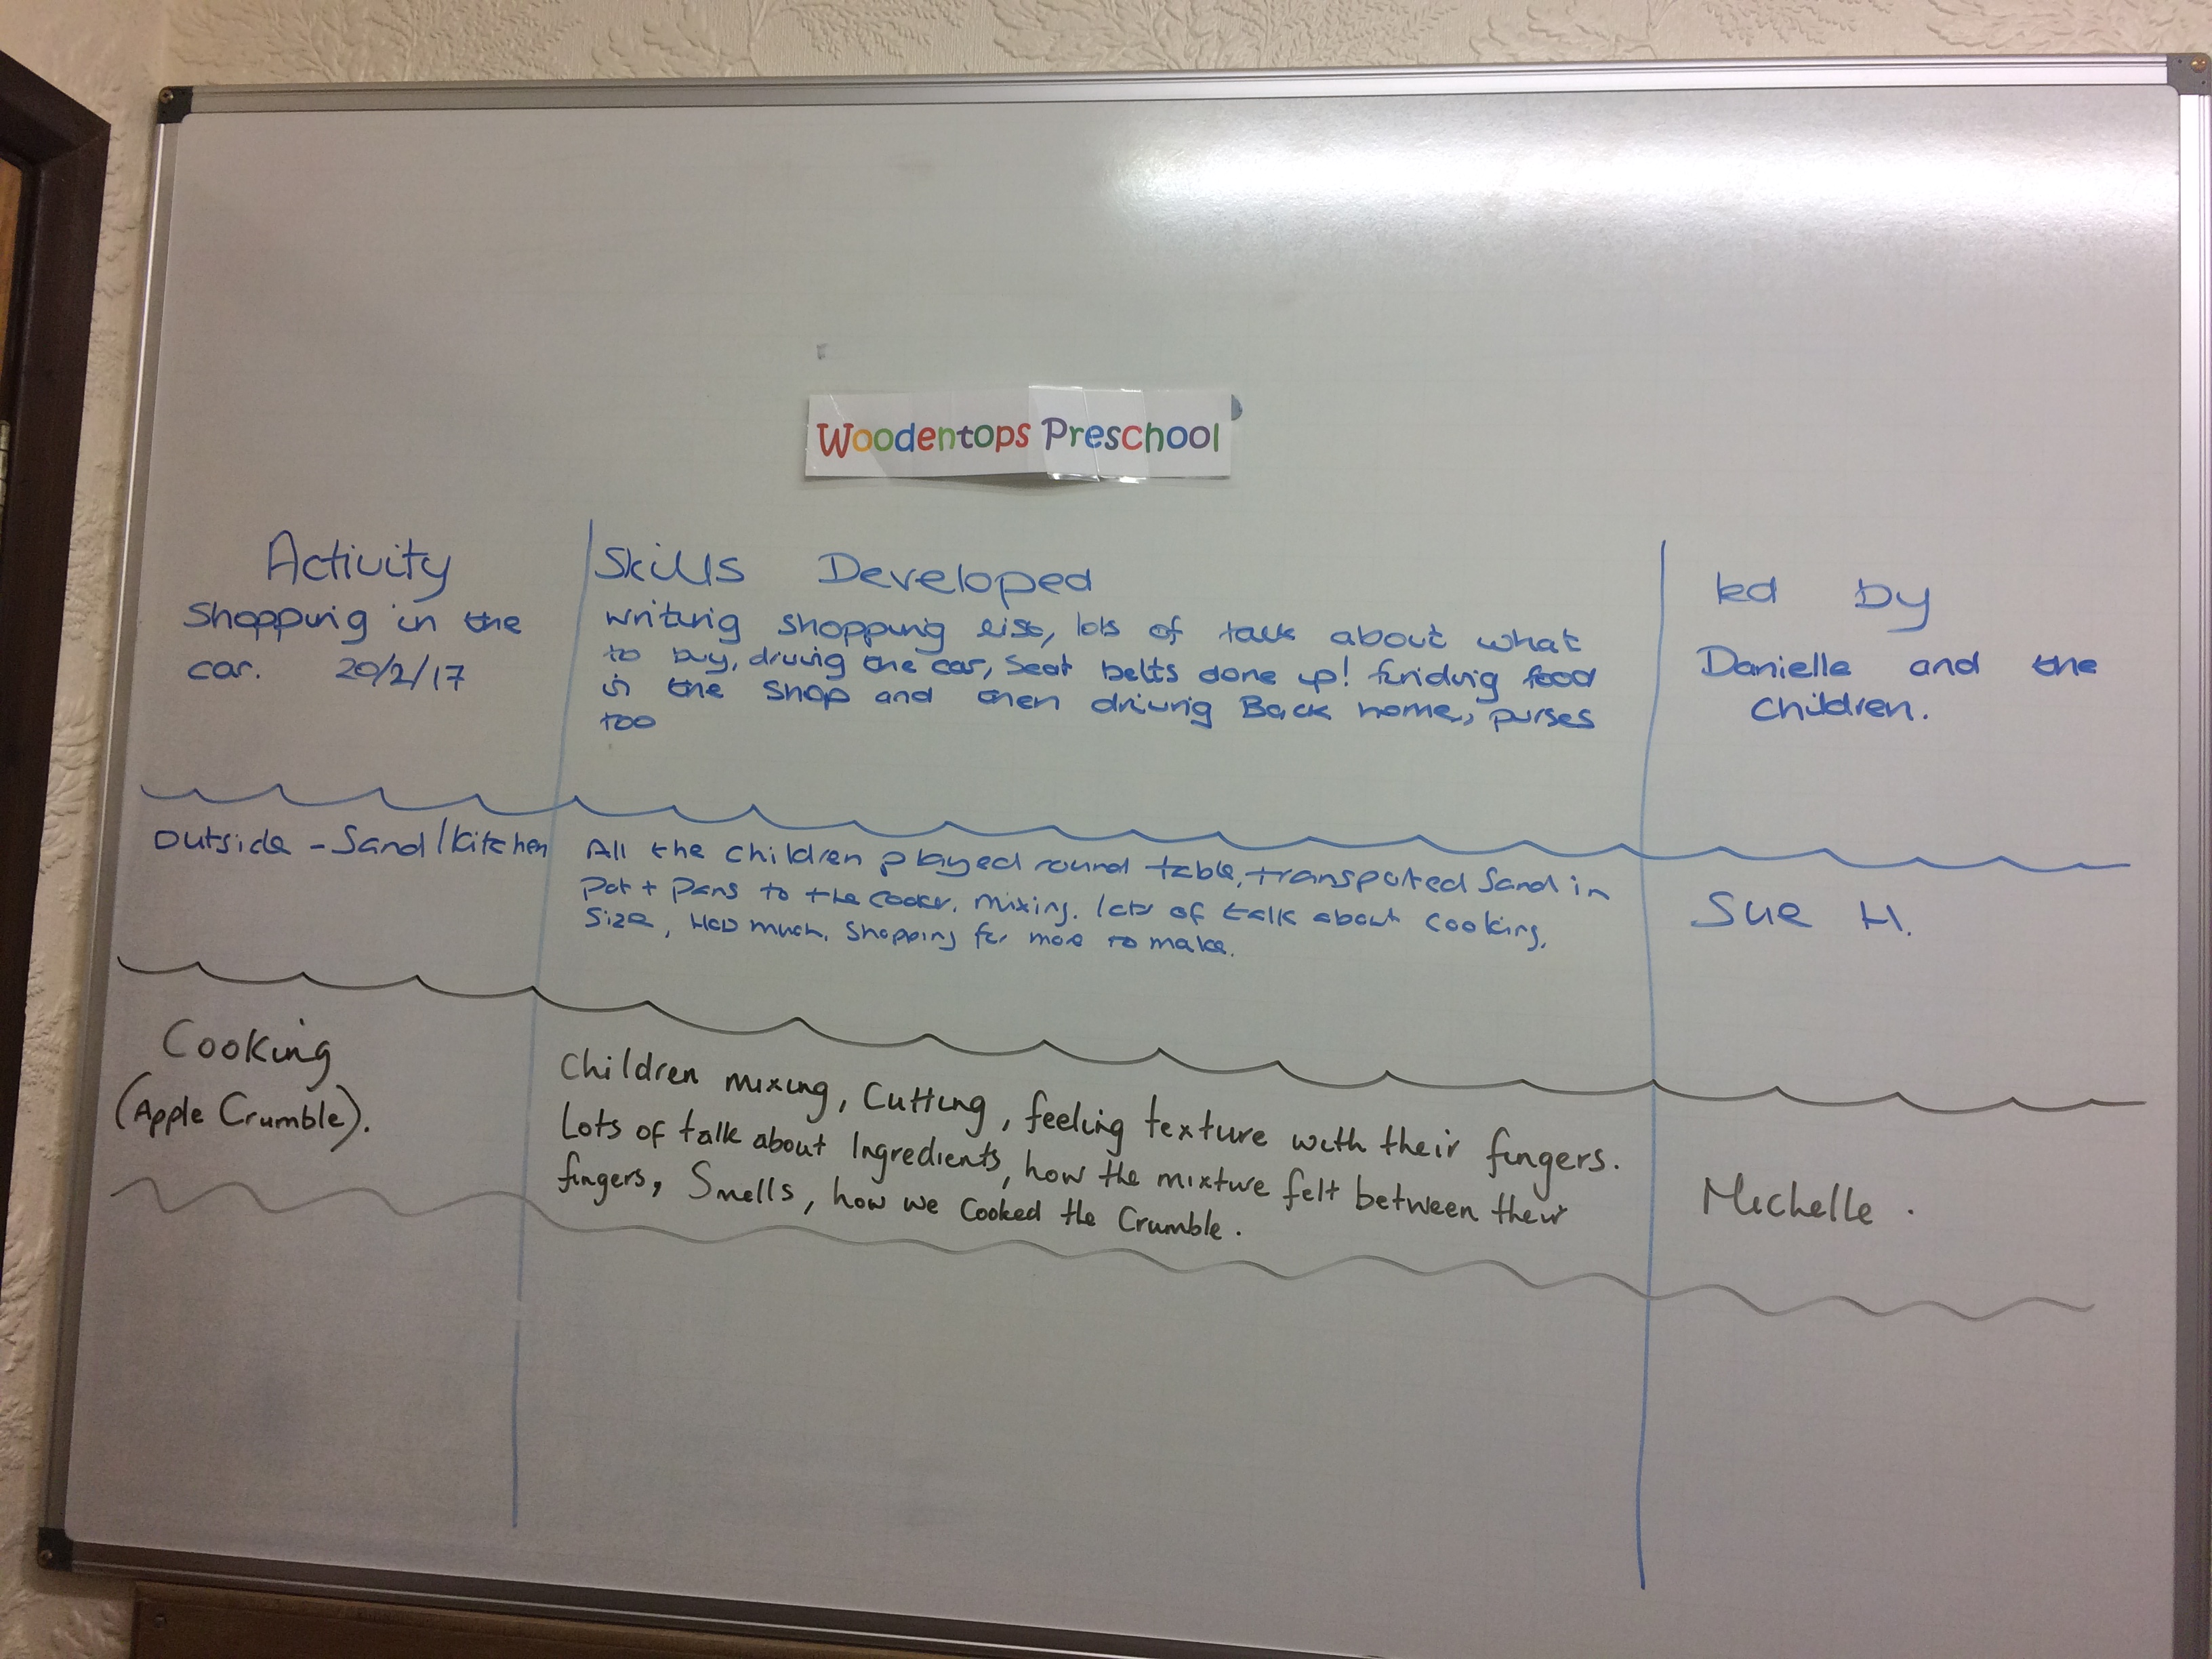 Woodentops Preschool
Activity
Skills Developed
led by
Shopping in the
car. 20/2/17
writing shopping list, lots of talk about what
to buy, driving the car, Seat belts done up! finding food
in the shop and then driving Back home, purses
too
Danielle and the
Children.
Outside - Sand/Kitchen
All the children played round table, transported Sand in
Pot + Pans to the cooker. mixing. lots of talk about cooking,
Size, How much, Shopping for more to make.
Sue H.
Cooking
(Apple Crumble).
Children mixing, Cutting, feeling texture with their fingers.
Lots of talk about Ingredients, how the mixture felt between their
fingers, Smells, how we Cooked the Crumble.
Michelle.